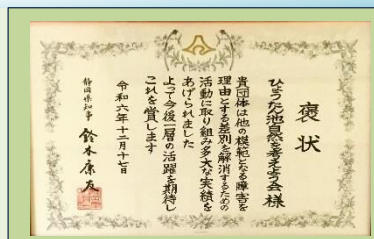 褒状
ひょうたん池自然を考えよう会 様
貴団体は他の模範となる障害を
理由とする差別を解消するための
活動に取り組み多大な実績を
あげられました
よって今後一層の活躍を期待し
これを賞します
令和六年十二月十七日
静岡県知事 鈴木康友